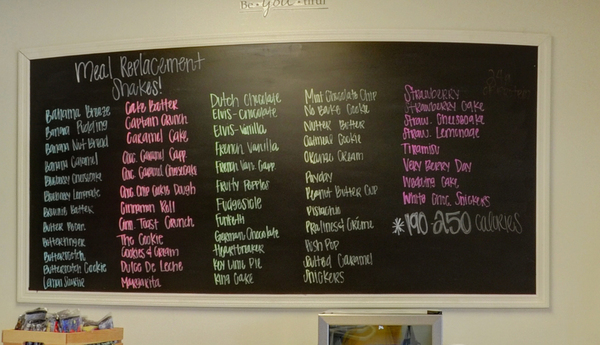 Be·you·tiful
Meal Replacement
Shakes!
Bahama Breeze
Banana Pudding
Banana Nut Bread
Banana Caramel
Blueberry Cheesecake
Blueberry Lemonade
Brownie Batter
Butter Pecan
Butterfinger
Butterscotch
Butterscotch Cookie
Cake Batter
Captain Crunch
Caramel Cake
Choc. Caramel Capp.
Choc. Caramel Cheesecake
Choc. Chip Cookie Dough
Cinnamon Roll
Cinn. Toast Crunch
The Cookie
Cookies & Cream
Dulce De Leche
Margarita
Dutch Chocolate
Elvis-Chocolate
Elvis-Vanilla
French Vanilla
French Van. Capp.
Fruity Pebbles
Fudgesicle
Funfetti
German Chocolate
Heartbreaker
Key Lime Pie
King Cake
Mint Chocolate Chip
No Bake Cookie
Nutter Butter
Oatmeal Cookie
Orange Cream
Payday
Peanut Butter Cup
Pistachio
Pralines & Creme
Push Pop
Salted Caramel
Snickers
Strawberry
Strawberry Cake
Straw. Cheesecake
Straw. Lemonade
Tiramisu
Very Berry Day
Wedding Cake
White Choc. Snickers
*190-250 calories